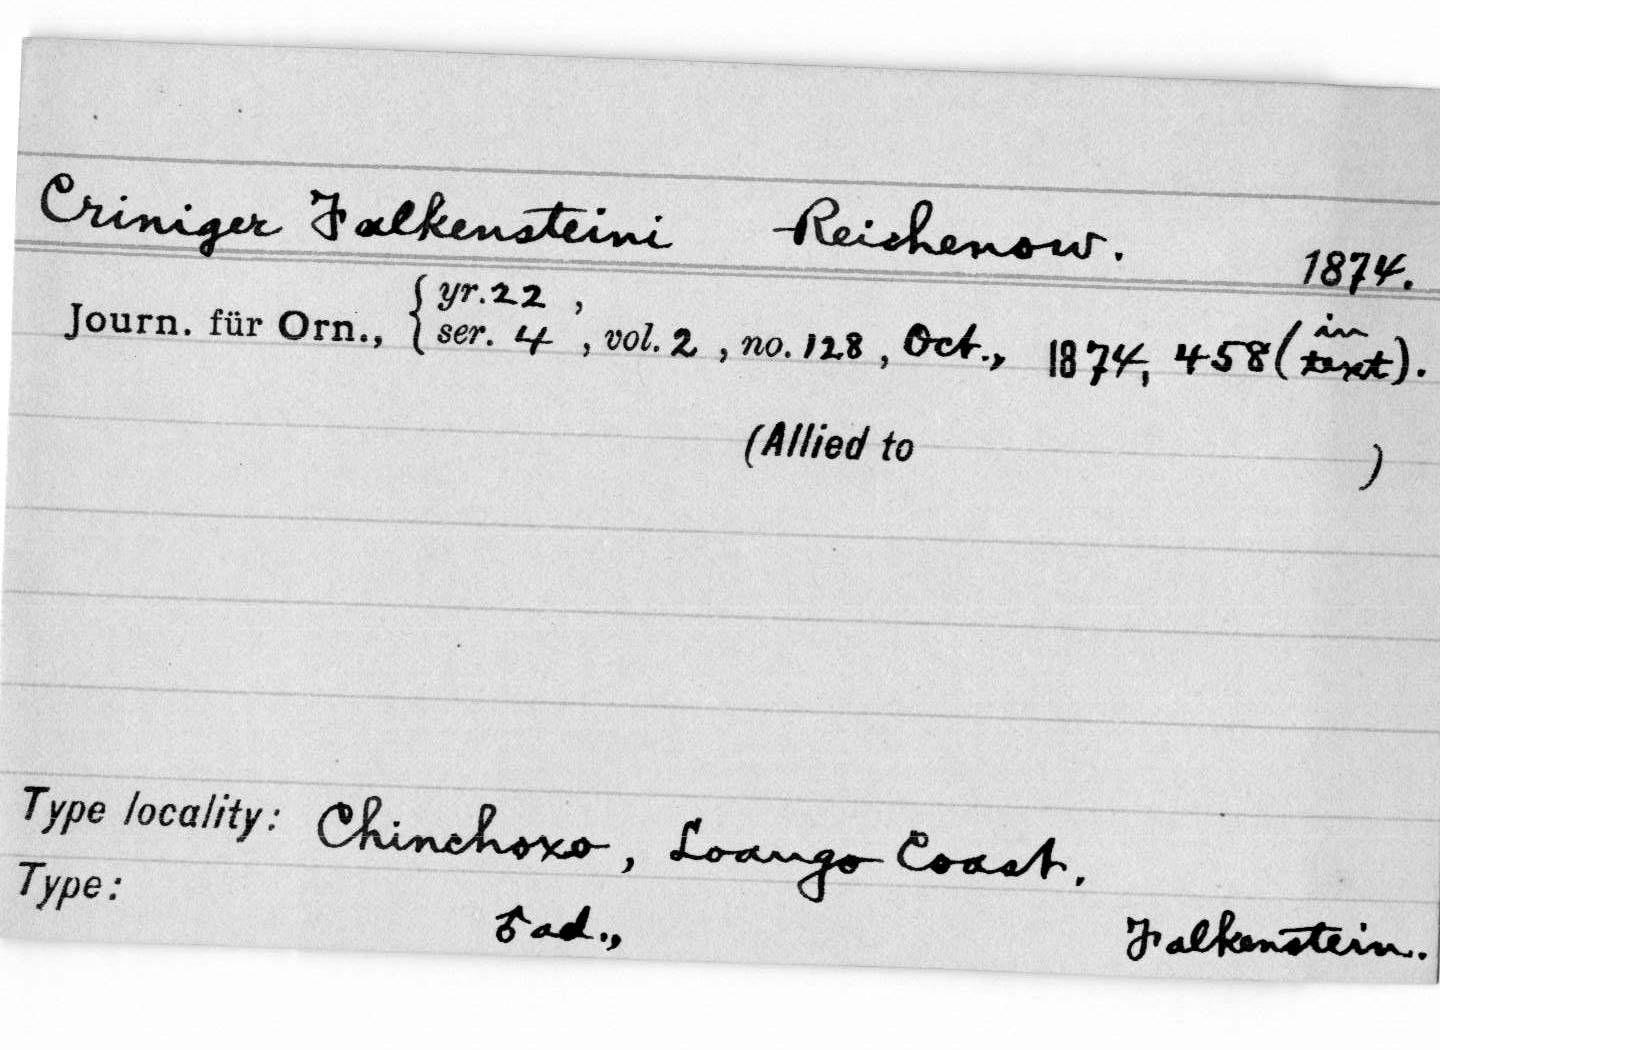 Criniger Falkensteini Reichenow. 1874.
Journ. für Orn., { yr. 22 ,
ser. 4 , vol. 2 , no. 128 , Oct., 1874, 458 (in text).
(Allied to )
Type locality: Chinchoxo, Loango Coast.
Type:
ad., Falkenstein.